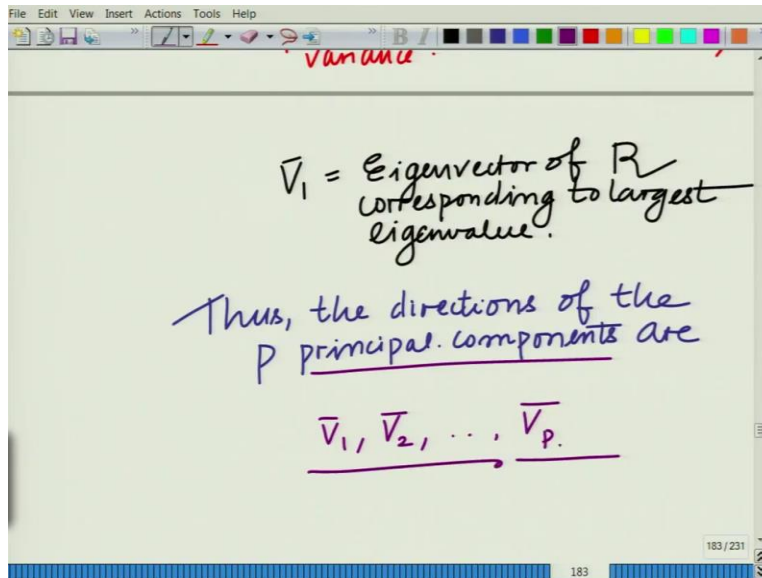 File Edit View Insert Actions Tools Help
B I
variance.
V̄₁ = Eigenvector of R
corresponding to largest
eigenvalue.
Thus, the directions of the
P principal. components are
V̄₁, V̄₂, ..., V̄ₚ.
183/231
183